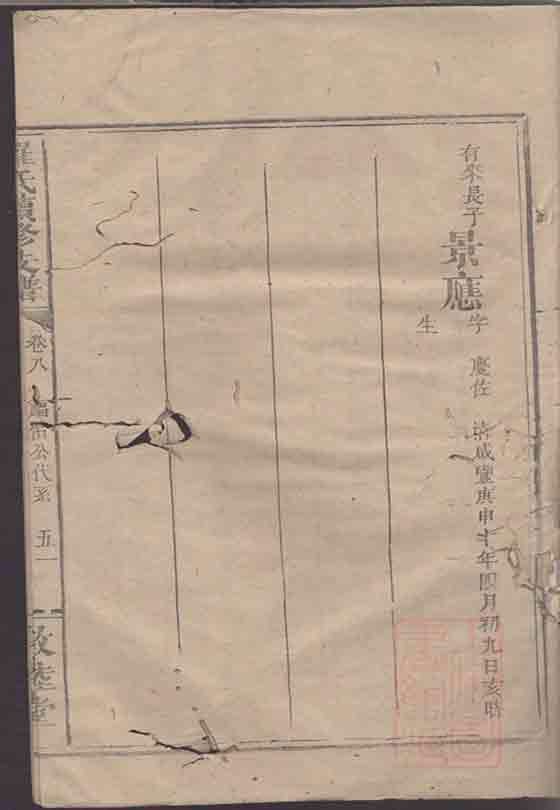 有來長子景應字 慶佐 清咸豐庚申十年四月初九日亥時
生
羅氏續修支譜
卷八
公代系
五一
敦睦堂